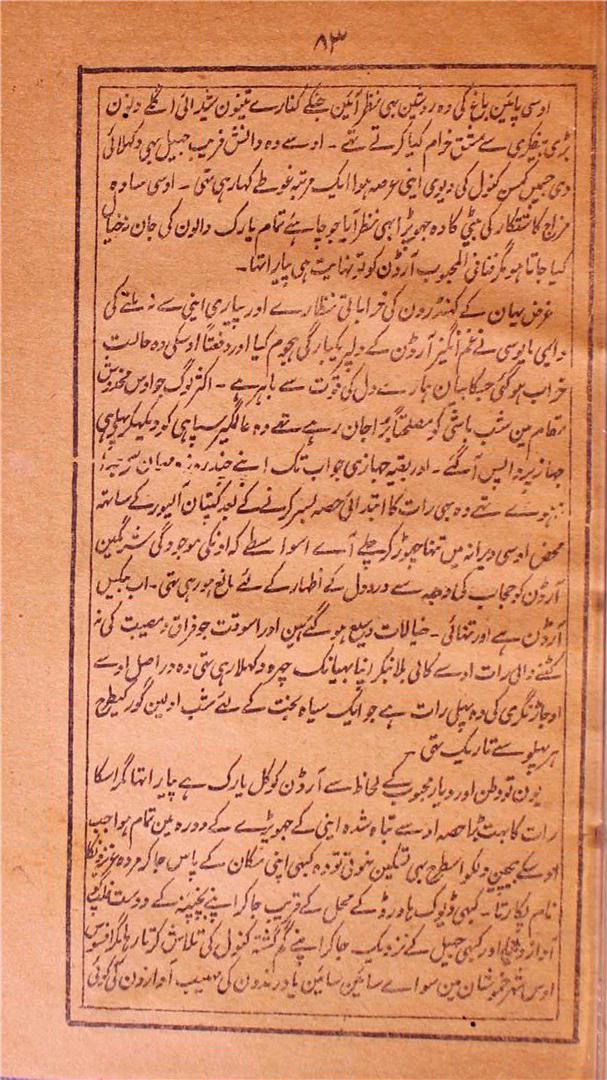 ۸۳
اوسی پائین باغ کی وہ روشین بہی نظر آئین جنکے کنارے تینون شیدائی اگلے دنون
بڑی بیفکری سے مشق خرام کیا کرتے تہے ۔ اوسے وہ دانش فریب جہیل بہی دکہلائی
دی جسمیں کمسن کنول کی دیوی اینی عرصہ ہوا ایک مرتبہ غوطے کہا رہی تہی ۔ اوسی سادہ
مزاج کاشتکار کی بیٹی کا وہ جہوپڑا بہی نظر آیا جو چاہئے تمام یارک والون کی جان و خیال
کیا جاتا ہو مگر فنافی المحبوب آرڈن کو تو نہایت ہی پیارا تہا ۔
غرض یہان کے کہنڈرون کی خراباتی نظارے اور پیاری اینی سے نہ ملنے کی
دایمی مایوسی نے غم انگیز آرڈن کے دلپر یکبارگی ہجوم کیا اور دفعتاً اوسکی وہ حالت
خراب ہوگئی جسکا بیان ہمارے دل کی قوت سے باہر ہے ۔ اکثر لوگ جو اوس مخدوش
مقام مین شب باشی کو مصلحتاً بُرا جان رہے تہے وہ عالمگیر سیاہی کو دیکہکر پہلے ہی
جہاز پر واپس آگئے ۔ اور بقیہ جہازی جو اب تک اپنے چند روزہ مہمان سے
نہوے تہے وہ بہی رات کا ابتدائی حصہ بسر کرنے کے بعد کپتان آلیور کے ساتہہ
محض اوسی ویرانہ میں تنہا چہوڑ کر چلے آے اسواسطے کہ اونکی موجودگی شرمگین
آرڈن کو حجاب کی وجہ سے درد دل کے اظہار کے لئے مانع ہو رہی تہی ۔ اب بیکس
آرڈن ہے اور تنہائی ۔ خیالات وسیع ہوگئے ہین اور اسوقت جو فراق و مصیبت کی نہ
کٹنے والی رات اوسے کالی بلا بنکر اپنا بہیانک چہرہ دکہلا رہی تہی وہ در اصل اوسے
اوجاڑ نگری کی وہ پہلی رات ہے جو ایک سیاہ بخت کے لئے شب اولین گور کیطرح
ہر پہلو سے تاریک تہی ۔
یون تو وطن اور دیار محبوب کے لحاظ سے آرڈن کو کل یارک ہے پیارا تہا مگر اسکا
رات کا بہت بڑا حصہ اوسے تباہ شدہ اینی کے جہوپڑے کے دورہ مین تمام ہوا جب
اوسکے بیچین دلکو اسطرح بہی تسکین نہوئی تو وہ کبہی اپنی مکان کے پاس جاکر مردہ عزیزونکا
نام پکارتا ۔ کبہی ڈیوک ہاورڈ کے محل کے قریب جاکر اپنے بچپنے کے دوست فلپ کو
آواز دیتا اور کبہی جہیل کے نزدیک جاکر اپنے گم گشتہ کنول کی تلاش کرتا رہا مگر افسوس
اوس شہر خموشان مین سواے سائین سائین یا درندون کی مہیب آوازون کی کوئی